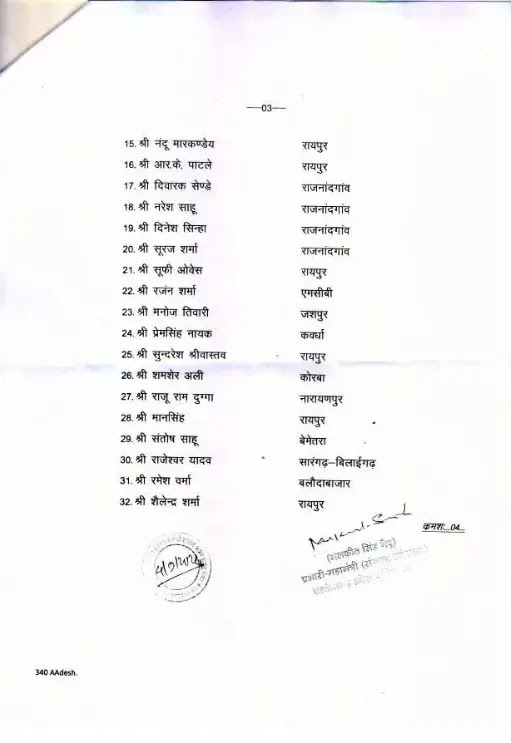 —03—
15. श्री नंदू मारकण्डेय रायपुर
16. श्री आर.के. पाटले रायपुर
17. श्री दिवारक सेण्डे राजनांदगांव
18. श्री नरेश साहू राजनांदगांव
19. श्री दिनेश सिन्हा राजनांदगांव
20. श्री सूरज शर्मा राजनांदगांव
21. श्री सूफी ओवेस रायपुर
22. श्री रजंन शर्मा एमसीबी
23. श्री मनोज तिवारी जशपुर
24. श्री प्रेमसिंह नायक कवर्धा
25. श्री सुन्दरेश श्रीवास्तव रायपुर
26. श्री शमशेर अली कोरबा
27. श्री राजू राम दुग्गा नारायणपुर
28. श्री मानसिंह रायपुर
29. श्री संतोष साहू बेमेतरा
30. श्री राजेश्वर यादव सारंगढ़–बिलाईगढ़
31. श्री रमेश वर्मा बलौदाबाजार
32. श्री शैलेन्द्र शर्मा रायपुर
क्रमशः..04..
(मलकीत सिंह गैदू)
प्रभारी-महामंत्री
340 AAdesh.